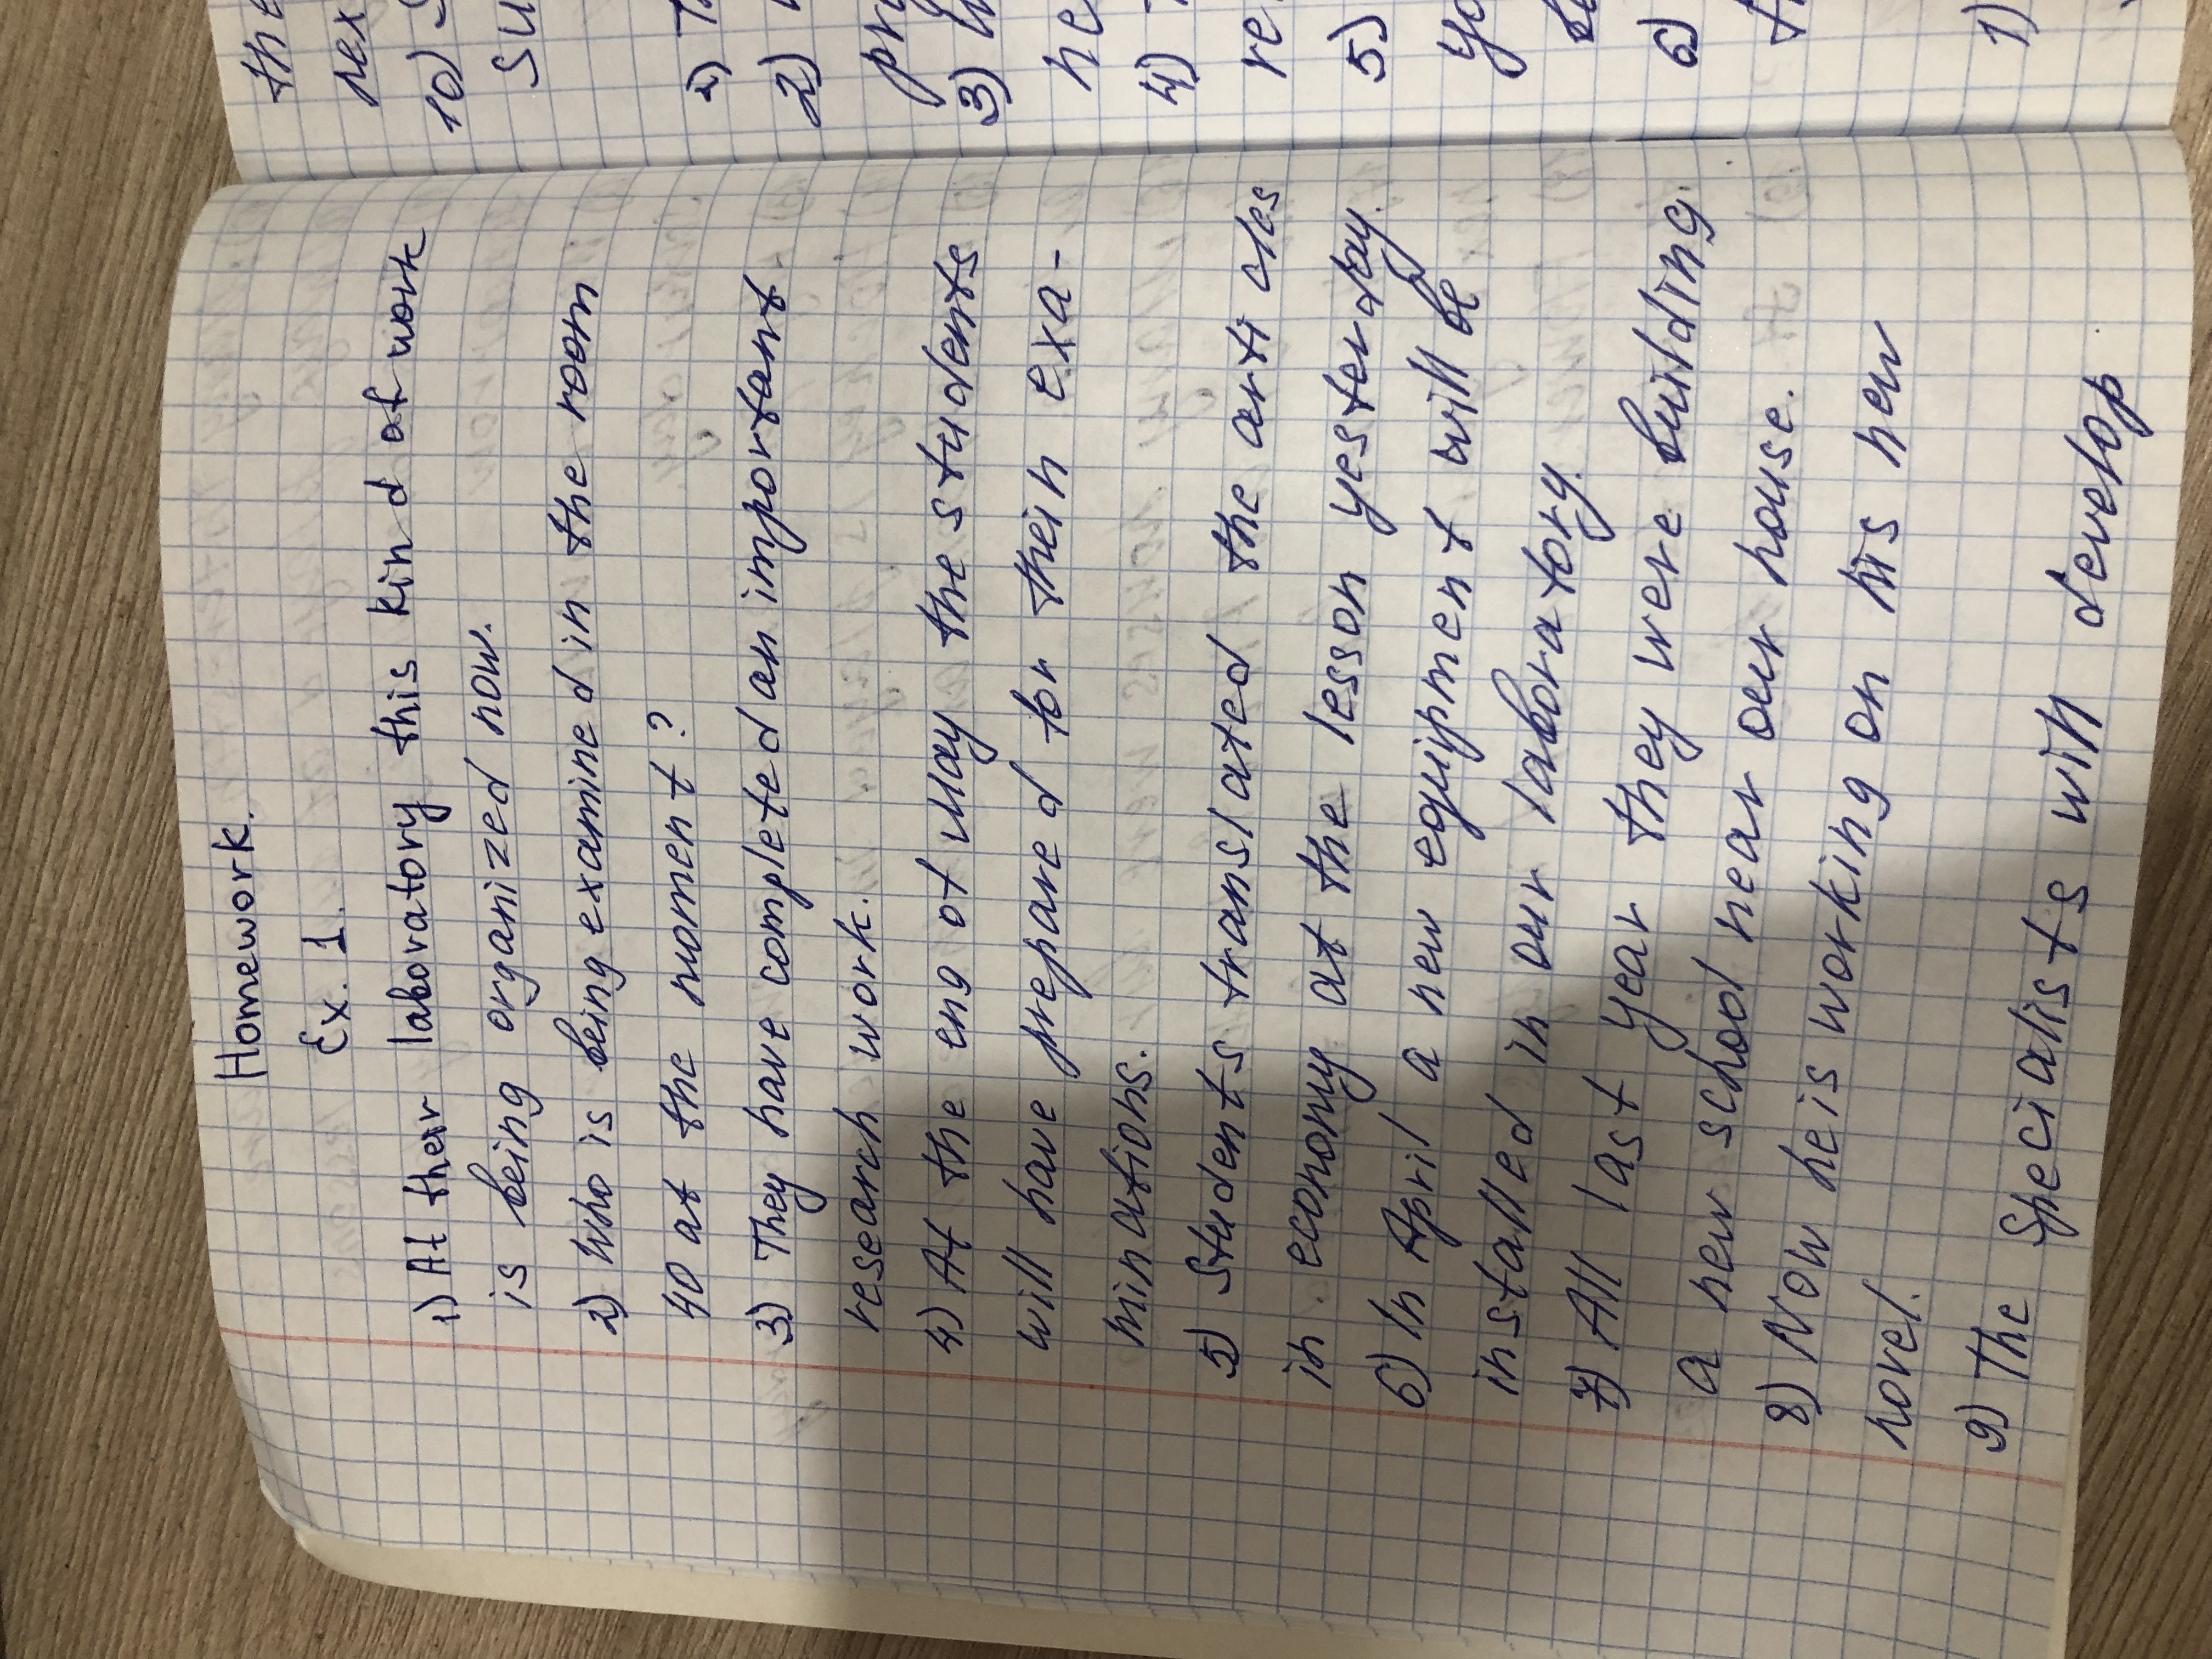 Homework.
Ex. 1.
1) At ther laboratory this kind of work
is being organized now.
2) Who is being examined in the room
40 at the moment?
3) They have completed an important
research work.
4) At the eng of May the students
will have prepared for their exa-
minations.
5) Students translated the articles
in economy at the lesson yesterday.
6) In April a new equipment will be
installed in our laboratory.
7) All last year they were building
a new school near our house.
8) Now he is working on his new
novel.
9) The specialists will develop
the
10)
su
1)
2)
3)
4)
5)
6)
1)